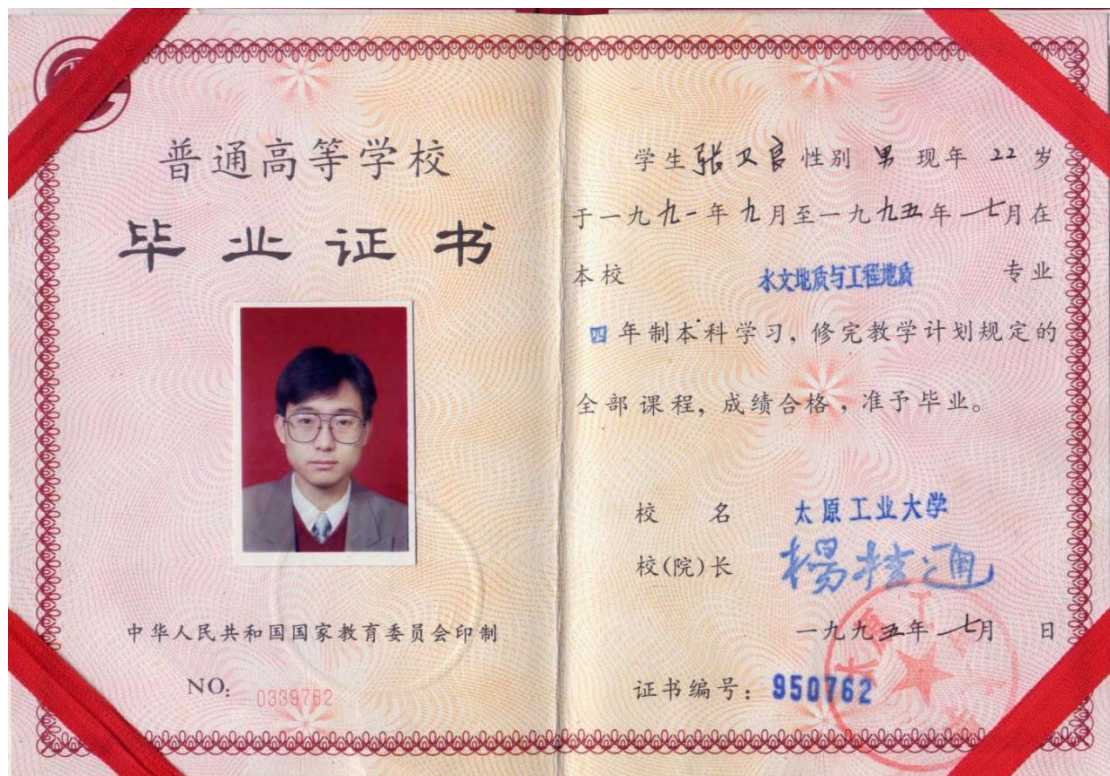 普通高等学校
毕业证书
中华人民共和国国家教育委员会印制
NO: 0339762
学生张卫良性别 男 现年 22 岁
于一九九一年九月至一九九五年七月在
本校 水文地质与工程地质 专业
四年制本科学习，修完教学计划规定的
全部课程，成绩合格，准予毕业。
校 名 太原工业大学
校(院)长 杨桂通
一九九五年七月 日
证书编号：950762